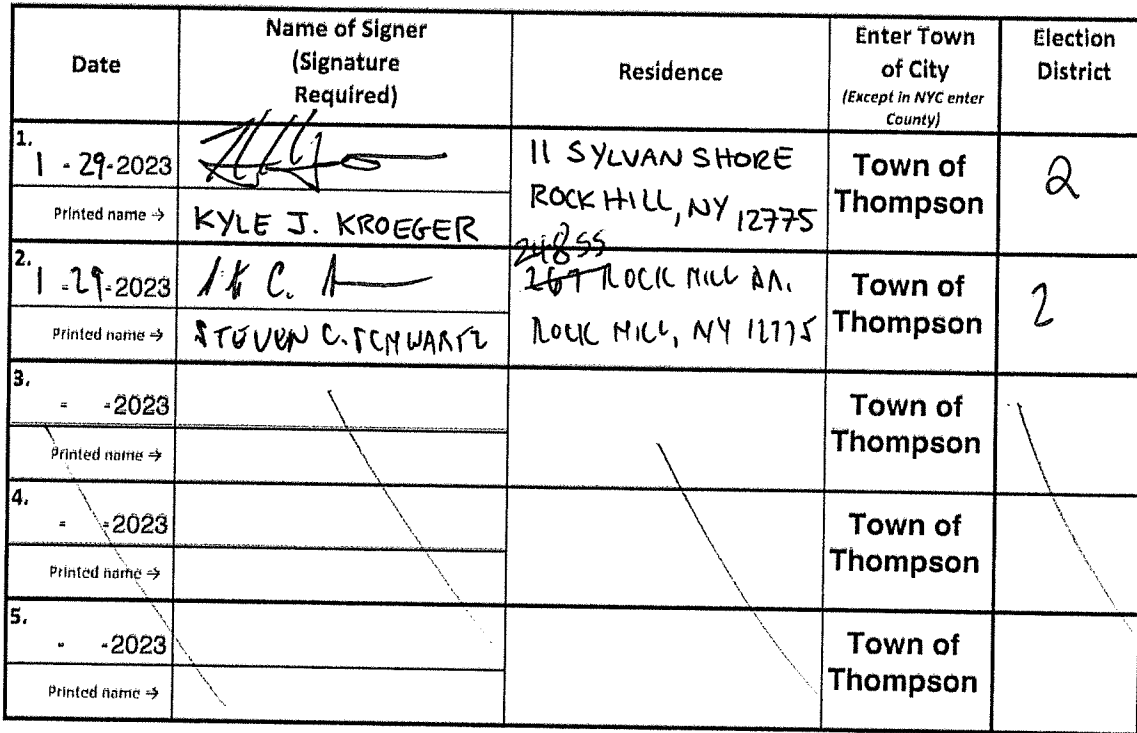 Date
Name of Signer
(Signature
Required)
Residence
Enter Town
of City
(Except in NYC enter
County)
Election
District
1.
1 - 29-2023
11 SYLVAN SHORE
ROCK HILL, NY 12775
Town of
Thompson
2
Printed name →
KYLE J. KROEGER
2.
1 - 29-2023
ROCK HILL DR.
ROCK HILL, NY 12775
Town of
Thompson
2
Printed name →
STEVEN C. SCHWARTZ
3.
- -2023
Town of
Thompson
Printed name →
4.
- -2023
Town of
Thompson
Printed name →
5.
- -2023
Town of
Thompson
Printed name →